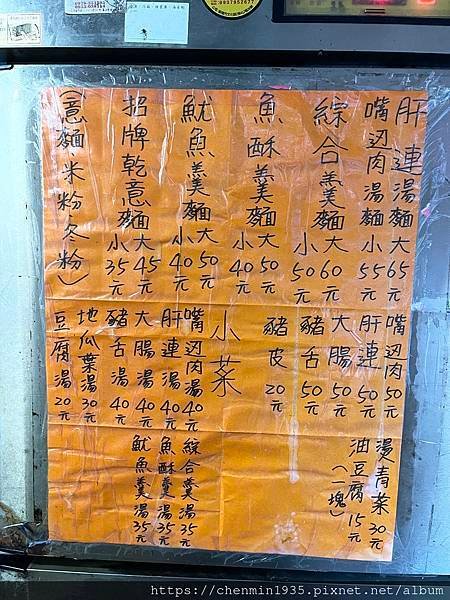 肝連湯麵大65元
嘴边肉湯麵小55元
綜合羹麵大60元
小50元
魚酥羹麵大50元
小40元
魷魚羹麵大50元
小40元
招牌乾意麵大45元
小35元
(意麵米粉冬粉)
嘴边肉50元
肝連50元
大腸50元
豬舌50元
豬皮20元
小菜
嘴边肉湯40元
肝連湯40元
大腸湯40元
豬舌湯40元
地瓜葉湯30元
豆腐湯20元
燙青菜30元
油豆腐15元
(一塊)
綜合羹湯35元
魚酥羹湯35元
魷魚羹湯35元
https://chenmin1935.pixnet.net/album